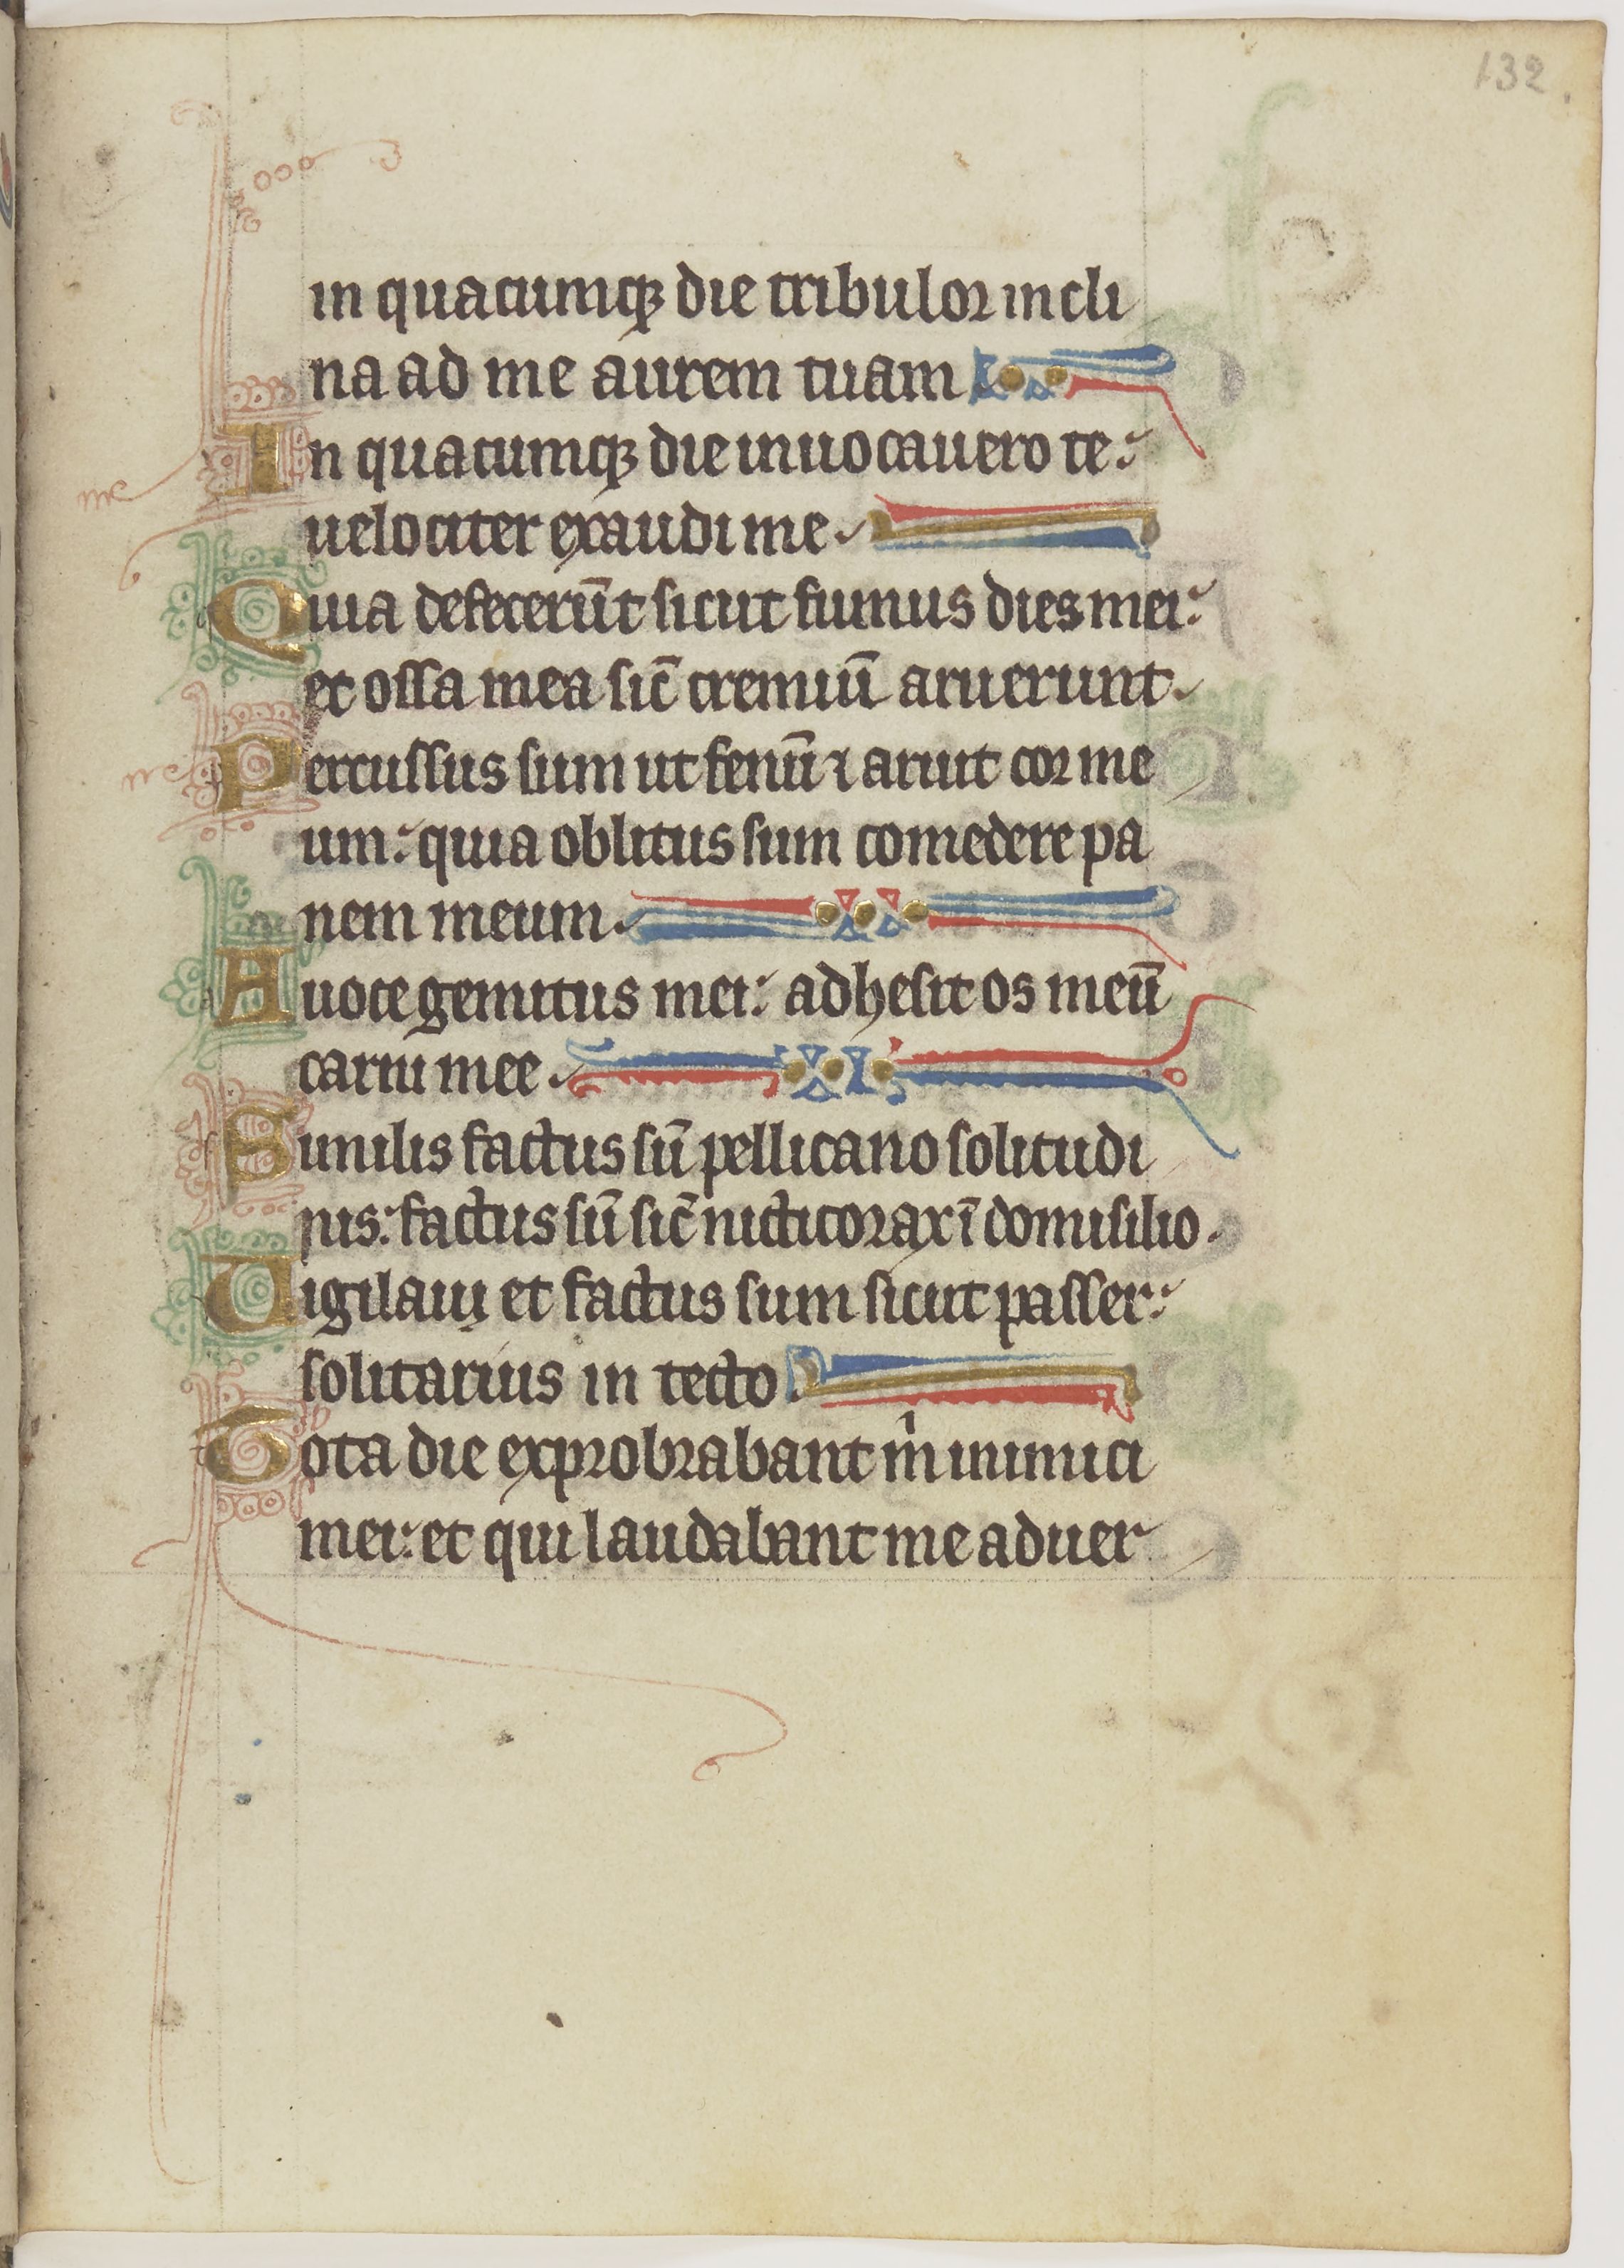 132.
in quacumqꝫ die tribulor incli
na ad me aurem tuam
In quacumqꝫ die inuocauero te:
uelociter exaudi me.
Quia defecerūt sicut fumus dies mei:
et ossa mea sic̄ cremiū aruerunt.
Percussus sum ut fenū ⁊ aruit cor me
um: quia oblitus sum comedere pa
nem meum.
A uoce gemitus mei: adhesit os meū
carni mee.
Similis factus sū pellicano solitudi
nis: factus sū sic̄ nicticorax ī domisilio.
Uigilaui et factus sum sicut passer:
solitarius in tecto.
Tota die exprobrabant m̍ inimici
mei: et qui laudabant me aduer